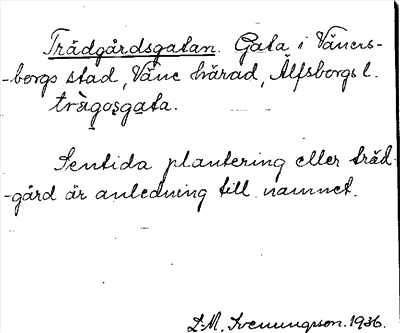 Trädgårdsgatan. Gata i Väners-
-borgs stad, Väne härad, Älfsborgs l.
trägosgata.
Sentida plantering eller träd-
-gård är anledning till namnet.
D.M. Svenungsson. 1936.